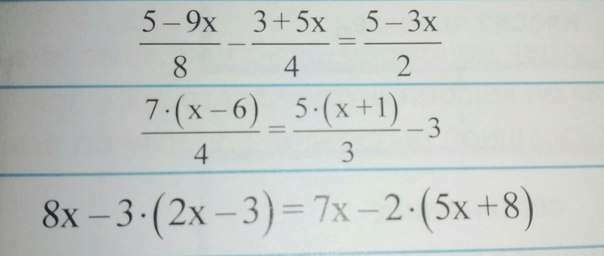 (5−9x)/8 − (3+5x)/4 = (5−3x)/2
7·(x−6)/4 = 5·(x+1)/3 −3
8x−3·(2x−3)=7x−2·(5x+8)